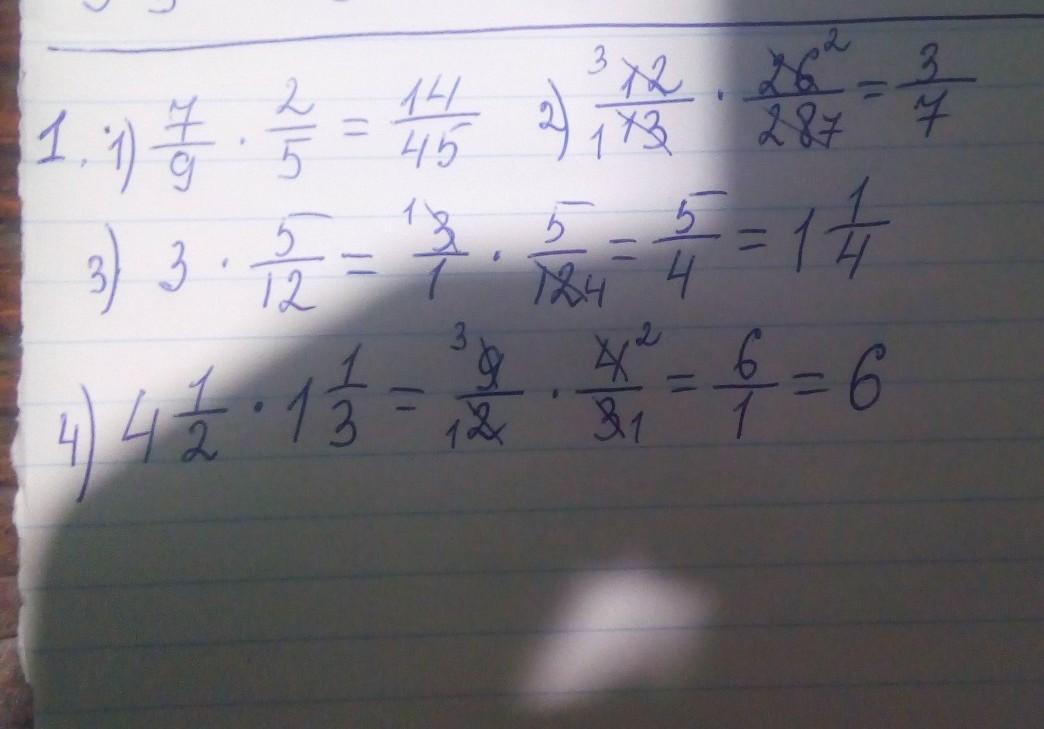 1. 1) 7/9 · 2/5 = 14/45 2) 3 12/1 13 · 26 2/28 7 = 3/7
3) 3 · 5/12 = 1 3/1 · 5/12 4 = 5/4 = 1 1/4
4) 4 1/2 · 1 1/3 = 3 9/1 2 · 4 2/3 1 = 6/1 = 6